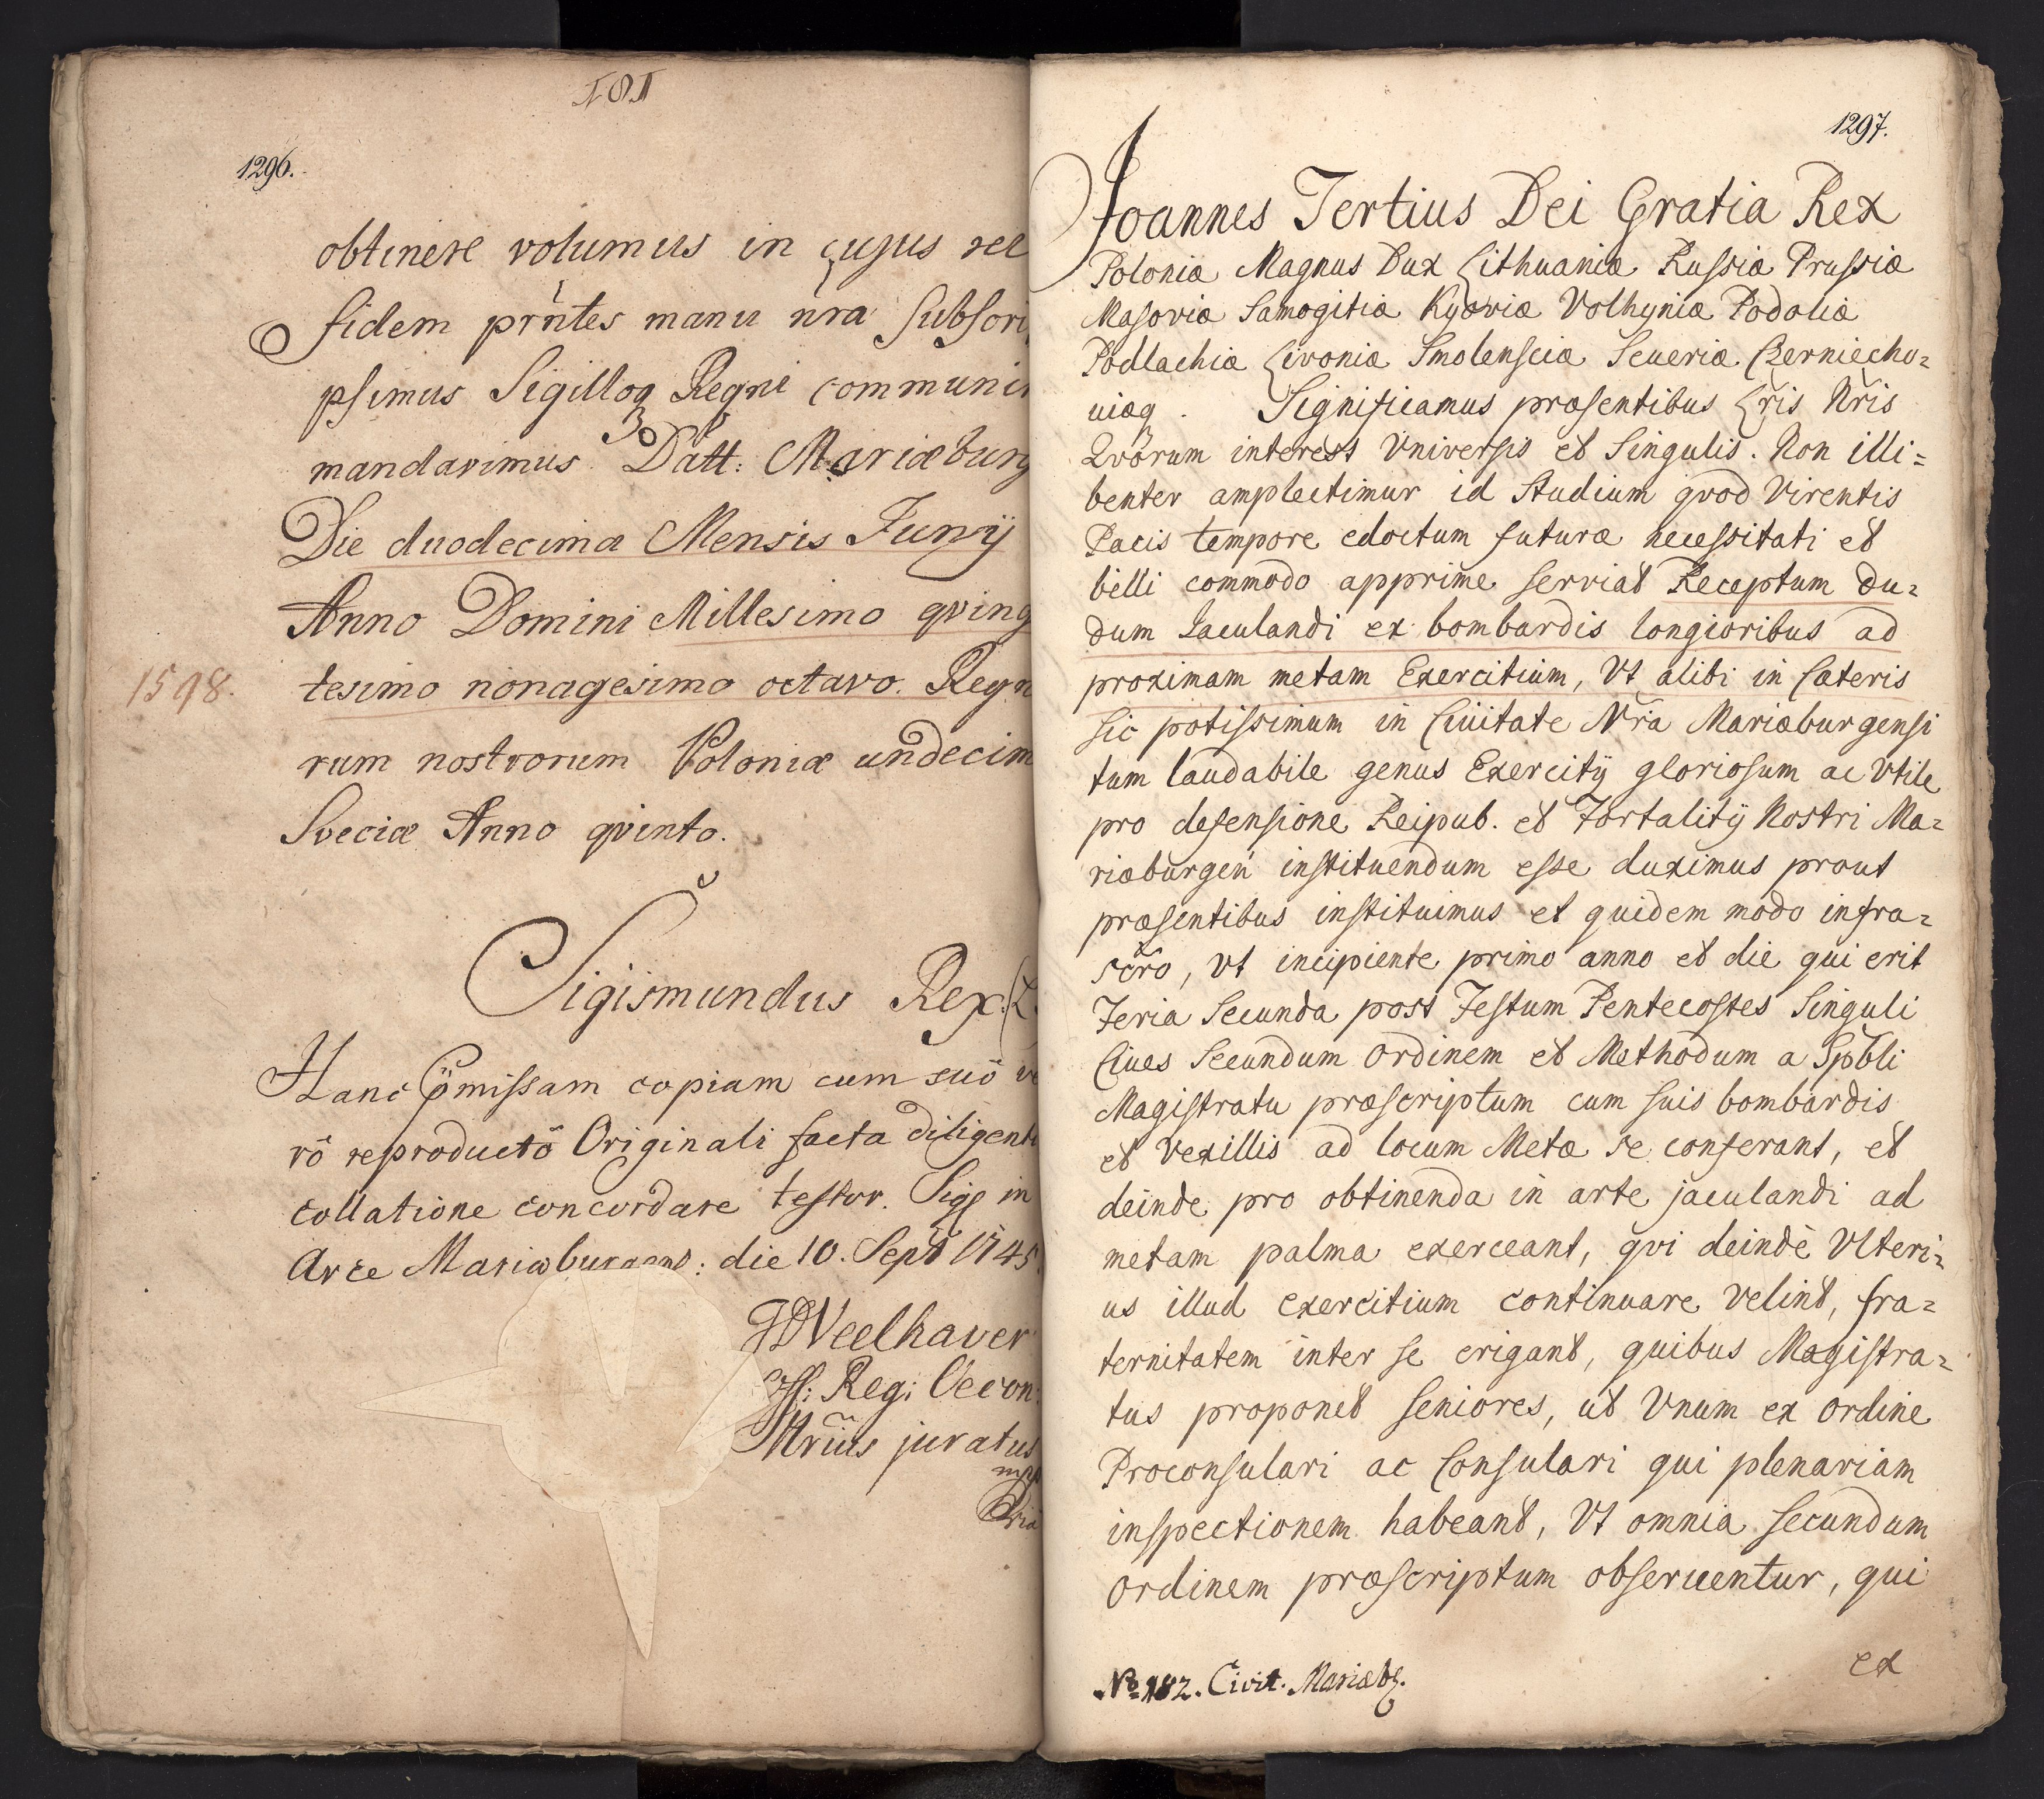 181
1296.
obtinere volumus in cujus rei
fidem prñtes manu nra subscri
psimus Sigilloq Regni communi
mandavimus. Datt: Mariæburg
Die duodecima Mensis Junÿ
Anno Domini Millesimo qving
1598.
tesimo nonagesimo octavo. Regn
rum nostrorum Poloniæ undecim
Sveciæ Anno qvinto.
Sigismundus Rex. (L
Hanc p̈missam copiam cum suö ve
rö reproductö Originali facta diligenti
collatione concordare testor. Sigs in
Arce Mariæburgens: die 10. Sept 1745
Reg: Oecon:
juratus
mpp
1297.
Joannes Tertius Dei Gratia Rex
Poloniæ Magnus Dux Lithuaniæ Russiæ Prussiæ
Masoviæ Samogitiæ Kyoviæ Volhyniæ Podoliæ
Podlachiæ Livoniæ Smolensciæ Seueriæ Czerniecho=
uiæq. Significamus præsentibus Lr̃is Nr̃is
Qvorum interest Vniversis et Singulis. Non illi=
benter amplectimur id Studium qvod Virentis
Pacis tempore edoctum futuræ necessitati et
belli commodo apprime serviat Receptum du=
dum Iaculandi ex bombardis longioribus ad
proximam metam Exercitium, Vt alibi in Cæteris
sic potissimum in Ciuitate Nr̃a Mariæburgensi
tum laudabile genus Exercitÿ gloriosum ac Vtile
pro defensione Reipub. et Fortalitÿ Nostri Ma=
riæburgeñ instituendum esse duximus prout
præsentibus instituimus et quidem modo infra=
scr̃o, vt incipiente primo anno et die qui erit
Feria Secunda post Festum Pentecostes Singuli
Ciues Secundum Ordinem et Methodum a Spbli
Magistratu præscriptum cum suis bombardis
et Vexillis ad locum Metæ se conferant, et
deinde pro obtinenda in arte jaculandi ad
metam palma exerceant, qvi deindè Vlteri=
us illud exercitium continuare Velint, fra=
ternitatem inter se erigant, quibus Magistra=
tus proponet seniores, ut Vnum ex Ordine
Proconsulari ac Consulari qui plenariam
inspectionem habeant, Vt omnia secundum
Ordinem præscriptum obseruentur, qui
ex
No 182. Civit. Mariæb.